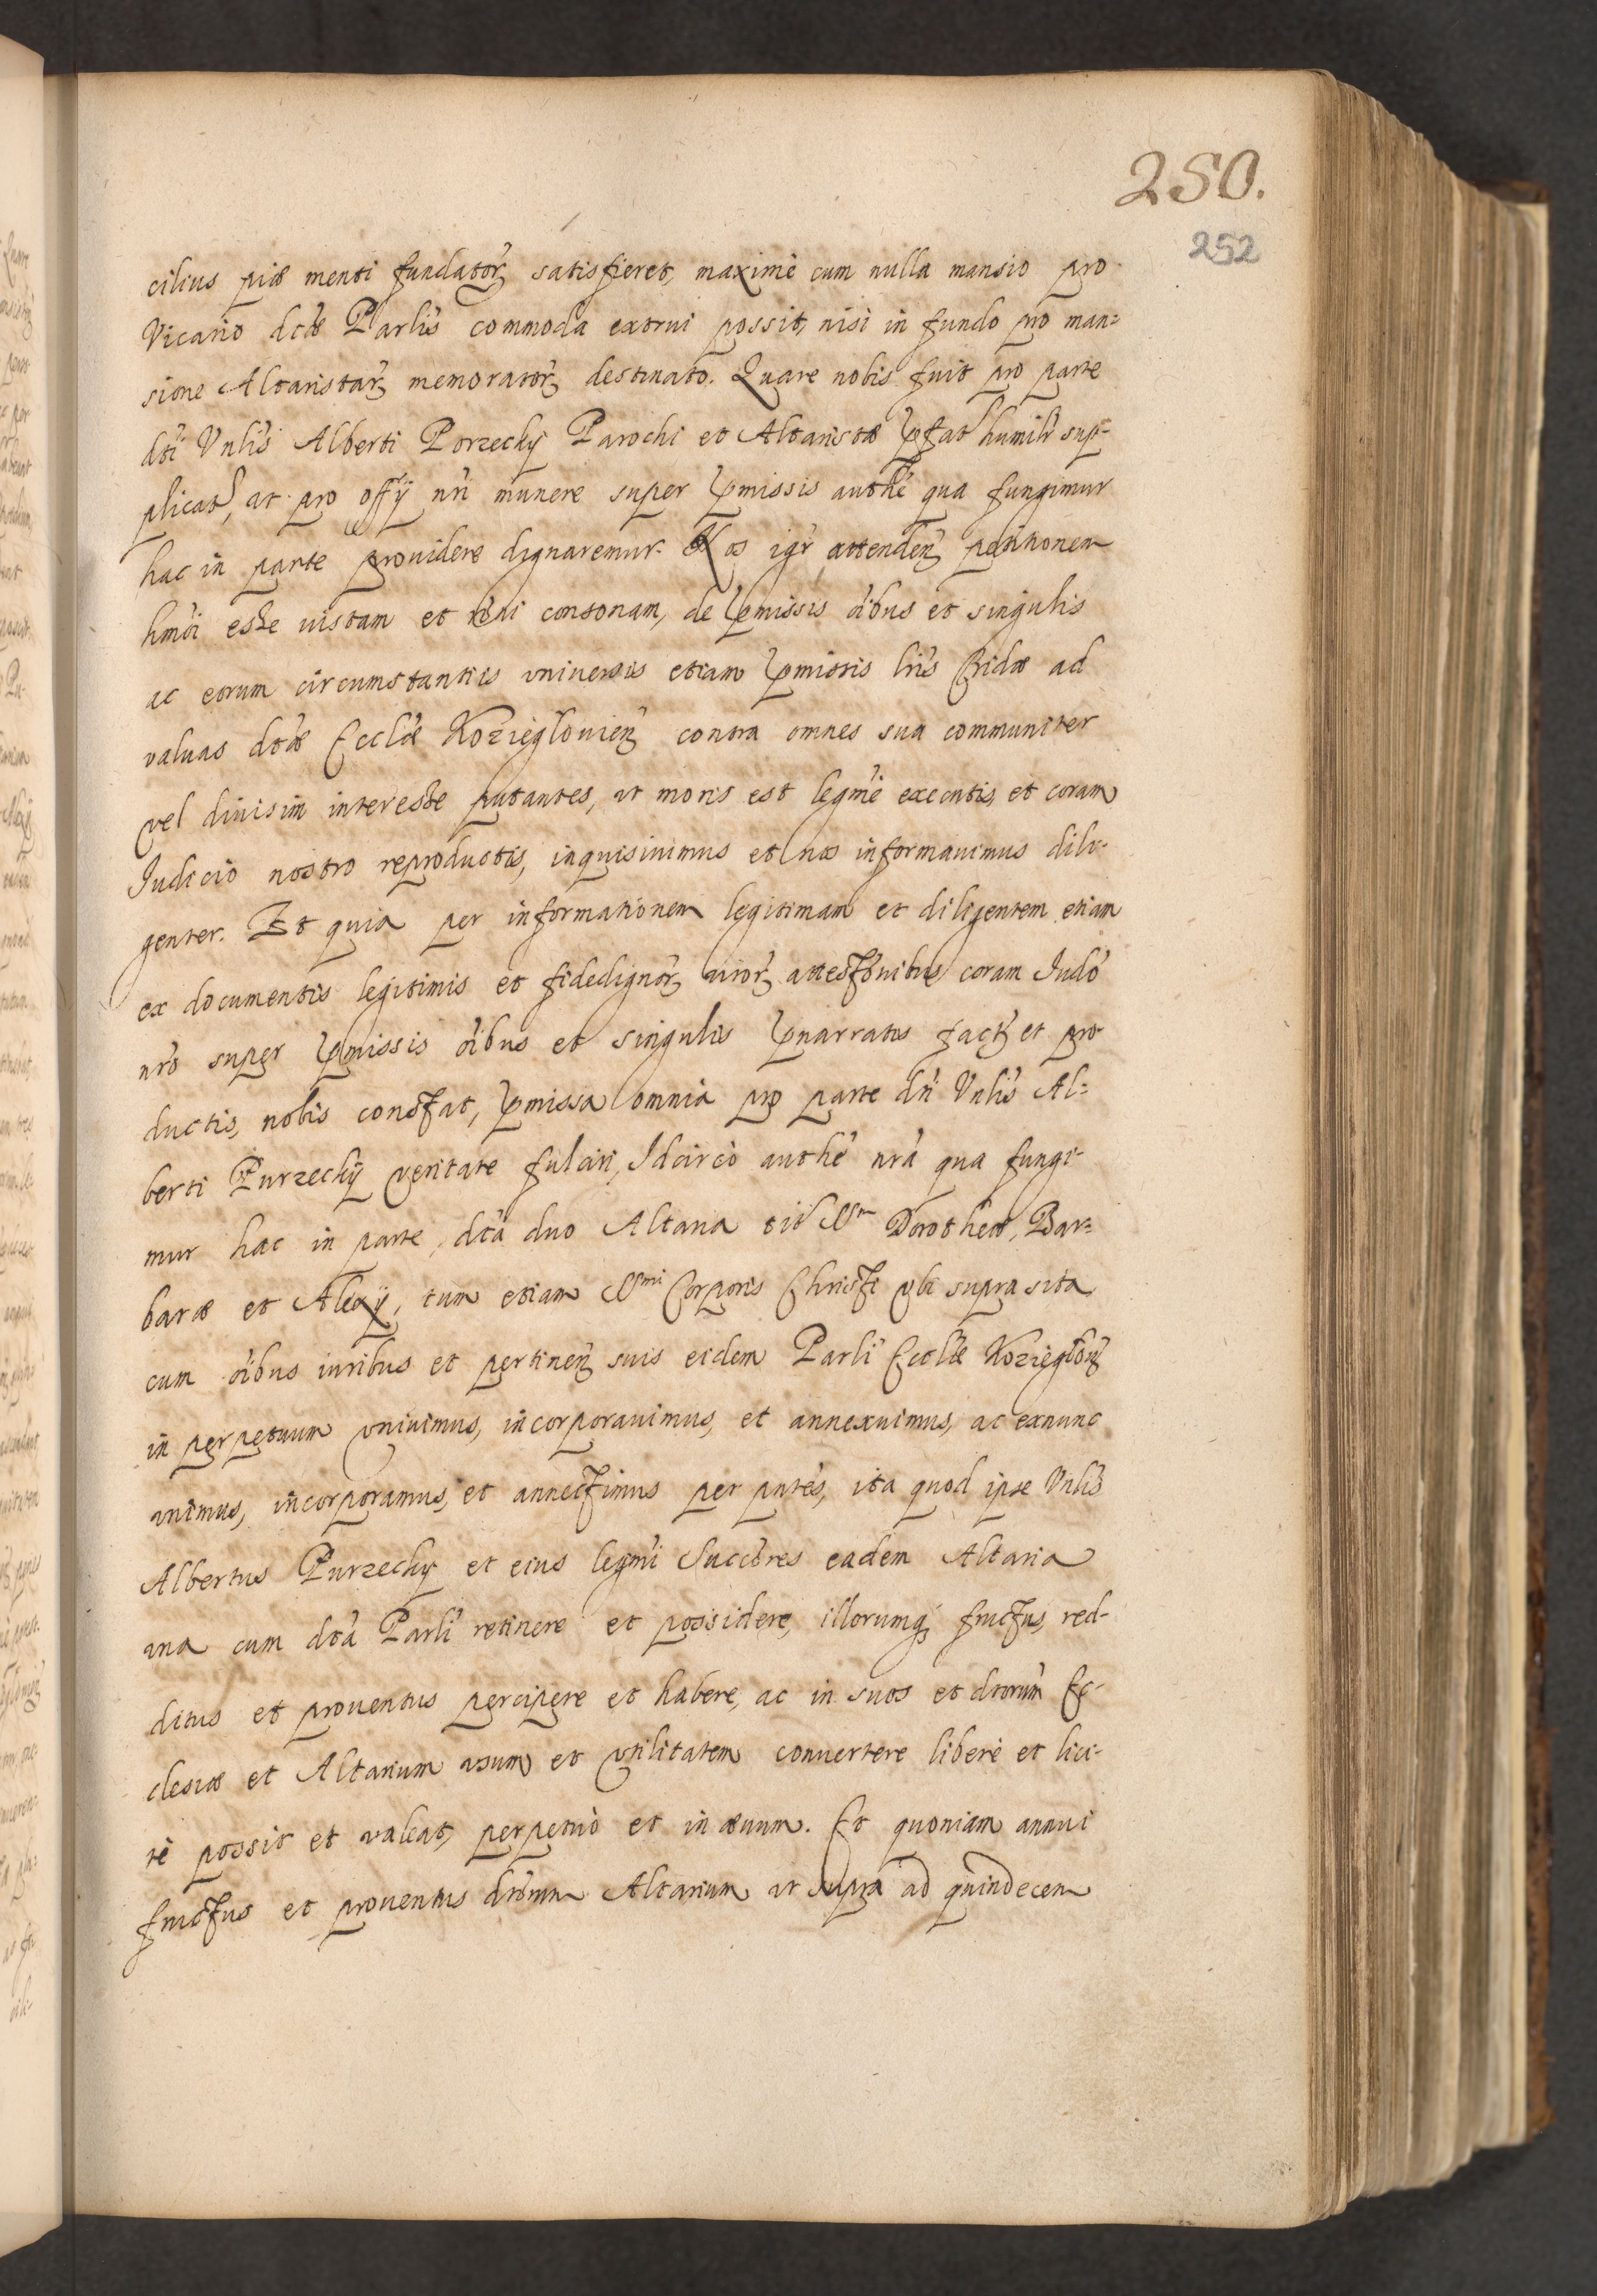 250.
252
cilius piæ menti fundatorꝫ satisfieret, maximè cum nulla mansio pro
Vicario dctæ Parlis commoda extrui possit, nisi in fundo pro man=
sione Altaristarꝫ memoratorꝫ destinato. Quare nobis fuit pro parte
dti Vnlis Alberti Porzecky Parochi et Altaristæ pfat humilr sup-
plicat, ut pro offy nri munere super pmissis authe qua fungimur
hac in parte prouidere dignaremur. Nos igr attendenꝫ petitionem
hmoi esse iustam et roni consonam, de pmissis oibus et singulis
ac eorum circumstantiis vniuersis etiam pmissis lris Cridæ ad
valuas dctæ Ecclæ Kozieglouienꝫ contra omnes sua communiter
vel diuisim interesse putantes, ut moris est legme executis et coram
Iudicio nostro reproductis, inquisiuimus et nos informauimus dili-
genter. Et quia per informationem legitimam et diligentem etiam
ex documentis legitimis et fidedignorꝫ uirorꝫ attestonibus coram Iudo
nro super pmissis oibus et singulis pnarratis factꝫ et pro
ductis, nobis constat, pmissa omnia pro parte dti Vnlis Al=
berti Purzecky veritate fulciri, Idcircò authe nra qua fungi-
mur hac in parte, dcta duo Altaria tit SSm Dorotheæ, Bar=
baræ et Alexy, tum etiam SSmi Corporis Christi vbi supra sita
cum oibus iuribus et pertinenꝫ suis eidem Parli Ecclæ Kozieglouꝫ
in perpetuum vniuimus, incorporauimus, et annexuimus, ac exnunc
unimus, incorporamus, et annectimus per pntes, ita quod ipse Vnlis
Albertus Purzecky et eius legmi Succores eadem Altaria
una cum dcta Parli retinere et possidere, illorumqꝫ fructus, red-
ditus et prouentus percipere et habere, ac in suos et dctorum Ec-
clesiæ et Altarium usum et vtilitatem conuertere liberè et lici-
tè possit et valeat, perpetuò et in æuum. Et quoniam annui
fructus et prouentus dctorum Altarium ut supra ad quindecem